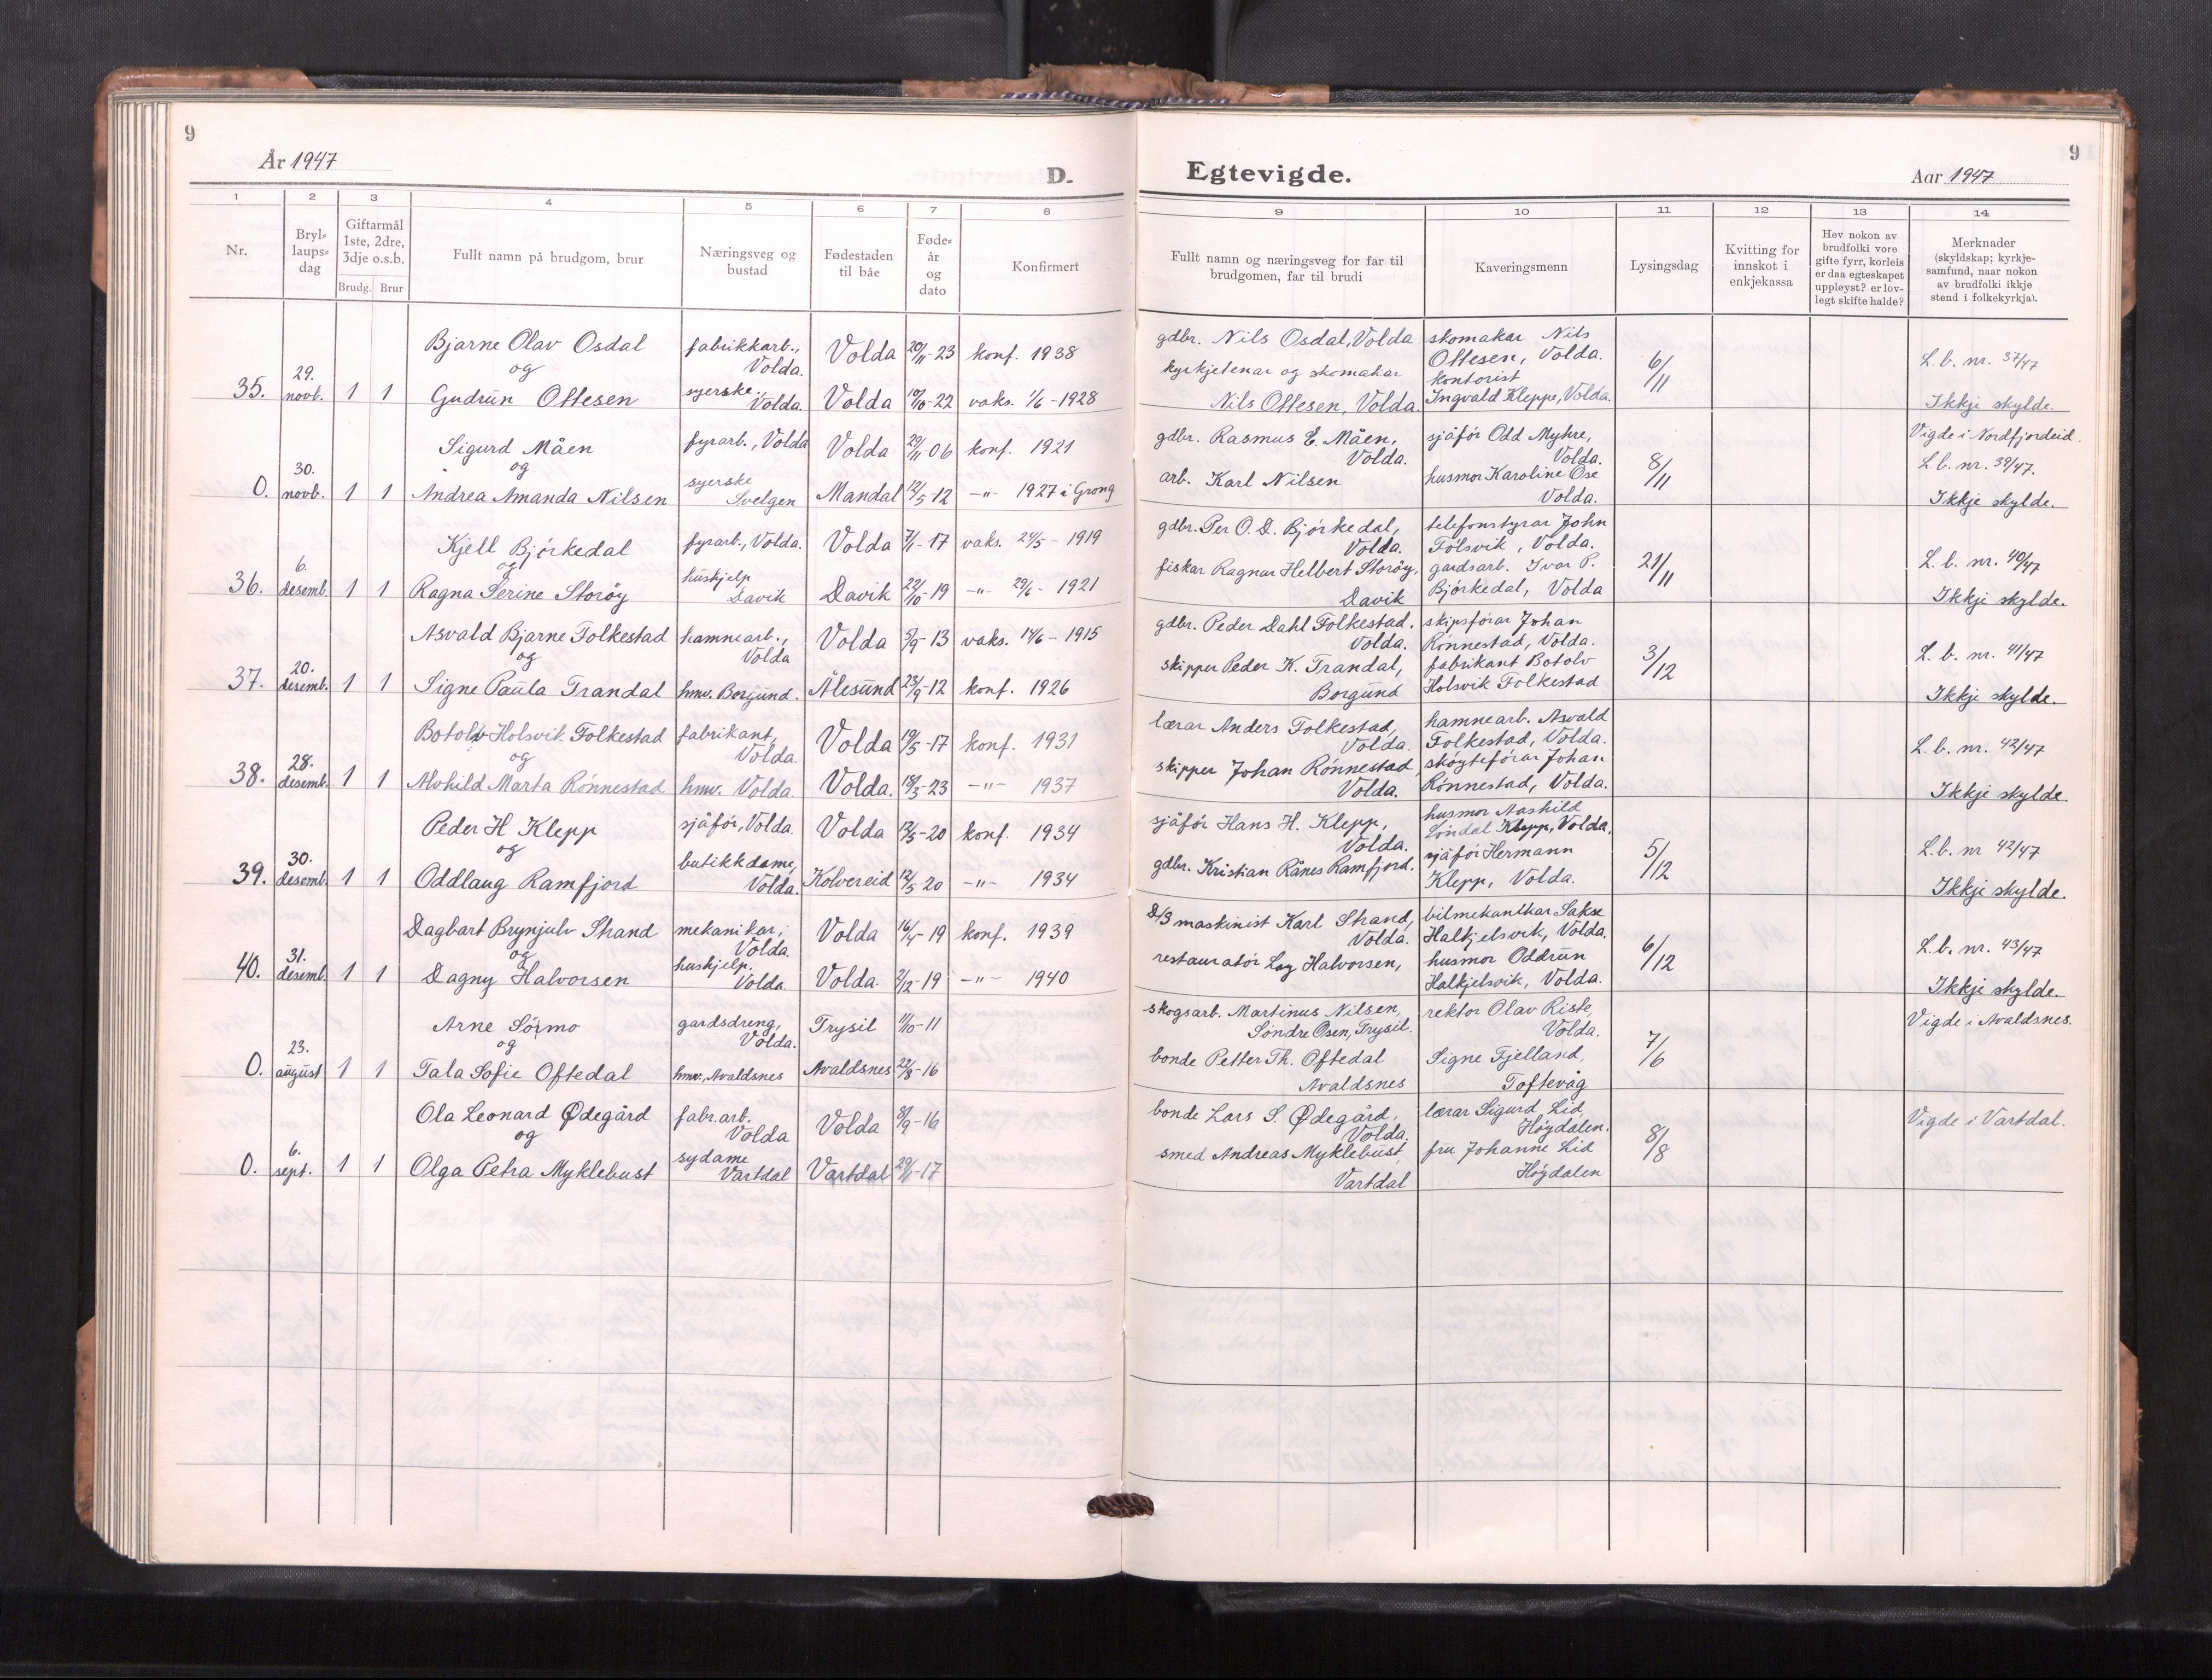 9
År 1947
D.
1 2 3 4 5 6 7 8
Nr.
Bryl-
laups-
dag
Giftarmål
1ste, 2dre,
3dje o.s.b.
Brudg. Brur
Fullt namn på brudgom, brur
Næringsveg og
bustad
Fødestaden
til båe
Føde-
år
og
dato
Konfirmert
Bjarne Olav Osdal fabrikkarb., Volda. Volda 20/11-23 konf. 1938
og
35. 29. novb. 1 1 Gudrun Ottesen syerske. Volda. Volda 10/10-22 vaks. 1/6-1928
Sigurd Måen fyrarb., Volda Volda 29/11-06 konf. 1921
og
0. 30. novb. 1 1 Andrea Amanda Nilsen syerske Svelgen Mandal 12/5-12 -"- 1927 i Grong
Kjell Bjørkedal fyrarb., Volda. Volda 7/1-17 vaks. 24/5-1919
og
36. 6. desemb. 1 1 Ragna Serine Storøy huskjelp Davik Davik 22/10-19 -"- 29/6-1921
Asvald Bjarne Folkestad hamnearb., Volda Volda 5/9-13 vaks. 14/6-1915
og
37. 20. desemb. 1 1 Signe Paula Trandal hmv. Borgund. Ålesund 23/9-12 konf. 1926
Botolv Holsvik Folkestad fabrikant, Volda. Volda 19/5-17 konf. 1931
og
38. 28. desemb. 1 1 Alvhild Marta Rønnestad hmv. Volda. Volda. 18/3-23 -"- 1937
Peder H Klepp sjåfør, Volda. Volda 12/5-20 konf. 1934
og
39. 30. desemb. 1 1 Oddlaug Ramfjord butikkdame, Volda. Kolvereid 12/5-20 -"- 1934
Dagbart Brynjulv Strand mekaniker, Volda. Volda 16/4-19 konf. 1939
og
40. 31. desemb. 1 1 Dagny Halvorsen huskjelp. Volda. Volda. 2/12-19 -"- 1940
Arne Sørmo gardsdreng, Volda. Trysil 11/10-11
og
0. 23. august 1 1 Tala Sofie Oftedal hmv., Avaldsnes Avaldsnes 22/8-16
Ola Leonard Ødegård fabr.arb. Volda Volda 8/9-16
og
0. 6. sept. 1 1 Olga Petra Myklebust sydame Vartdal Vartdal 29/1-17
9
Egtevigde.
Aar 1947
9 10 11 12 13 14
Fullt namn og næringsveg for far til
brudgomen, far til brudi
Kaveringsmenn
Lysingsdag
Kvitting for
innskot i
enkjekassa
Hev nokon av
brudfolki vore
gifte fyrr, korleis
er daa egteskapet
uppløyst? er lov-
legt skifte halde?
Merknader
(skyldskap; kyrkje-
samfund, naar nokon
av brudfolki ikkje
stend i folkekyrkja).
gdbr. Nils Osdal, Volda skomakar Nils
Ottesen, Volda. 6/11 L. b. nr. 37/47
kyrkjetenar og skomakar kontorist
Nils Ottesen, Volda. Ingvald Kleppe, Volda. Ikkje skylde.
gdbr. Rasmus E. Måen, sjåfør Odd Myhre, Vigde i Nordfjordeid.
Volda. Volda. 8/11 L b. nr. 39/47.
arb. Karl Nilsen husmor Karoline Ose
Volda. Ikkje skylde.
gdbr. Per O. D. Bjørkedal, telefonstyrar John
Volda. Følsvik, Volda. 21/11 L. b. nr. 40/47
fiskar Ragnar Helbert Storøy, gardsarb. Ivar P.
Davik Bjørkedal, Volda Ikkje skylde.
gdbr. Peder Dahl Folkestad. skipsførar Johan
Volda. Rønnestad, Volda. 3/12 L. b. nr. 41/47
skipper Peder K. Trandal, fabrikant Botolv
Borgund Holsvik Folkestad Ikkje skylde.
lærar Anders Folkestad, hamnearb. Asvald
Volda. Folkestad, Volda. L. b. nr. 42/47
skipper Johan Rønnestad, skøyteførar Johan
Volda. Rønnestad, Volda. Ikkje skylde.
sjåfør Hans H. Klepp, husmor Aashild
Volda. Løndal Klepp, Volda. 5/12 L. b. nr 42/47
gdbr. Kristian Rånes Ramfjord. sjåfør Hermann
Klepp, Volda. Ikkje skylde.
D/S maskinist Karl Strand, bilmekanikar Sakse
Volda. Halkjelsvik, Volda. 6/12 L. b. nr. 43/47
restauratør Halvorsen, husmor Oddrun
Halkjelsvik, Volda. Ikkje skylde.
skogsarb. Martinus Nilsen, rektor Olav Riste, Vigde i Avaldsnes.
Søndre Osen, Trysil. Volda. 7/6
bonde Petter Th. Oftedal Signe Fjelland,
Avaldsnes Toftevåg
bonde Lars S. Ødegård, lærar Sigurd Lid, Vigde i Vartdal.
Volda. Høydalen. 8/8
smed Andreas Myklebust, fru Johanne Lid
Vartdal Høydalen